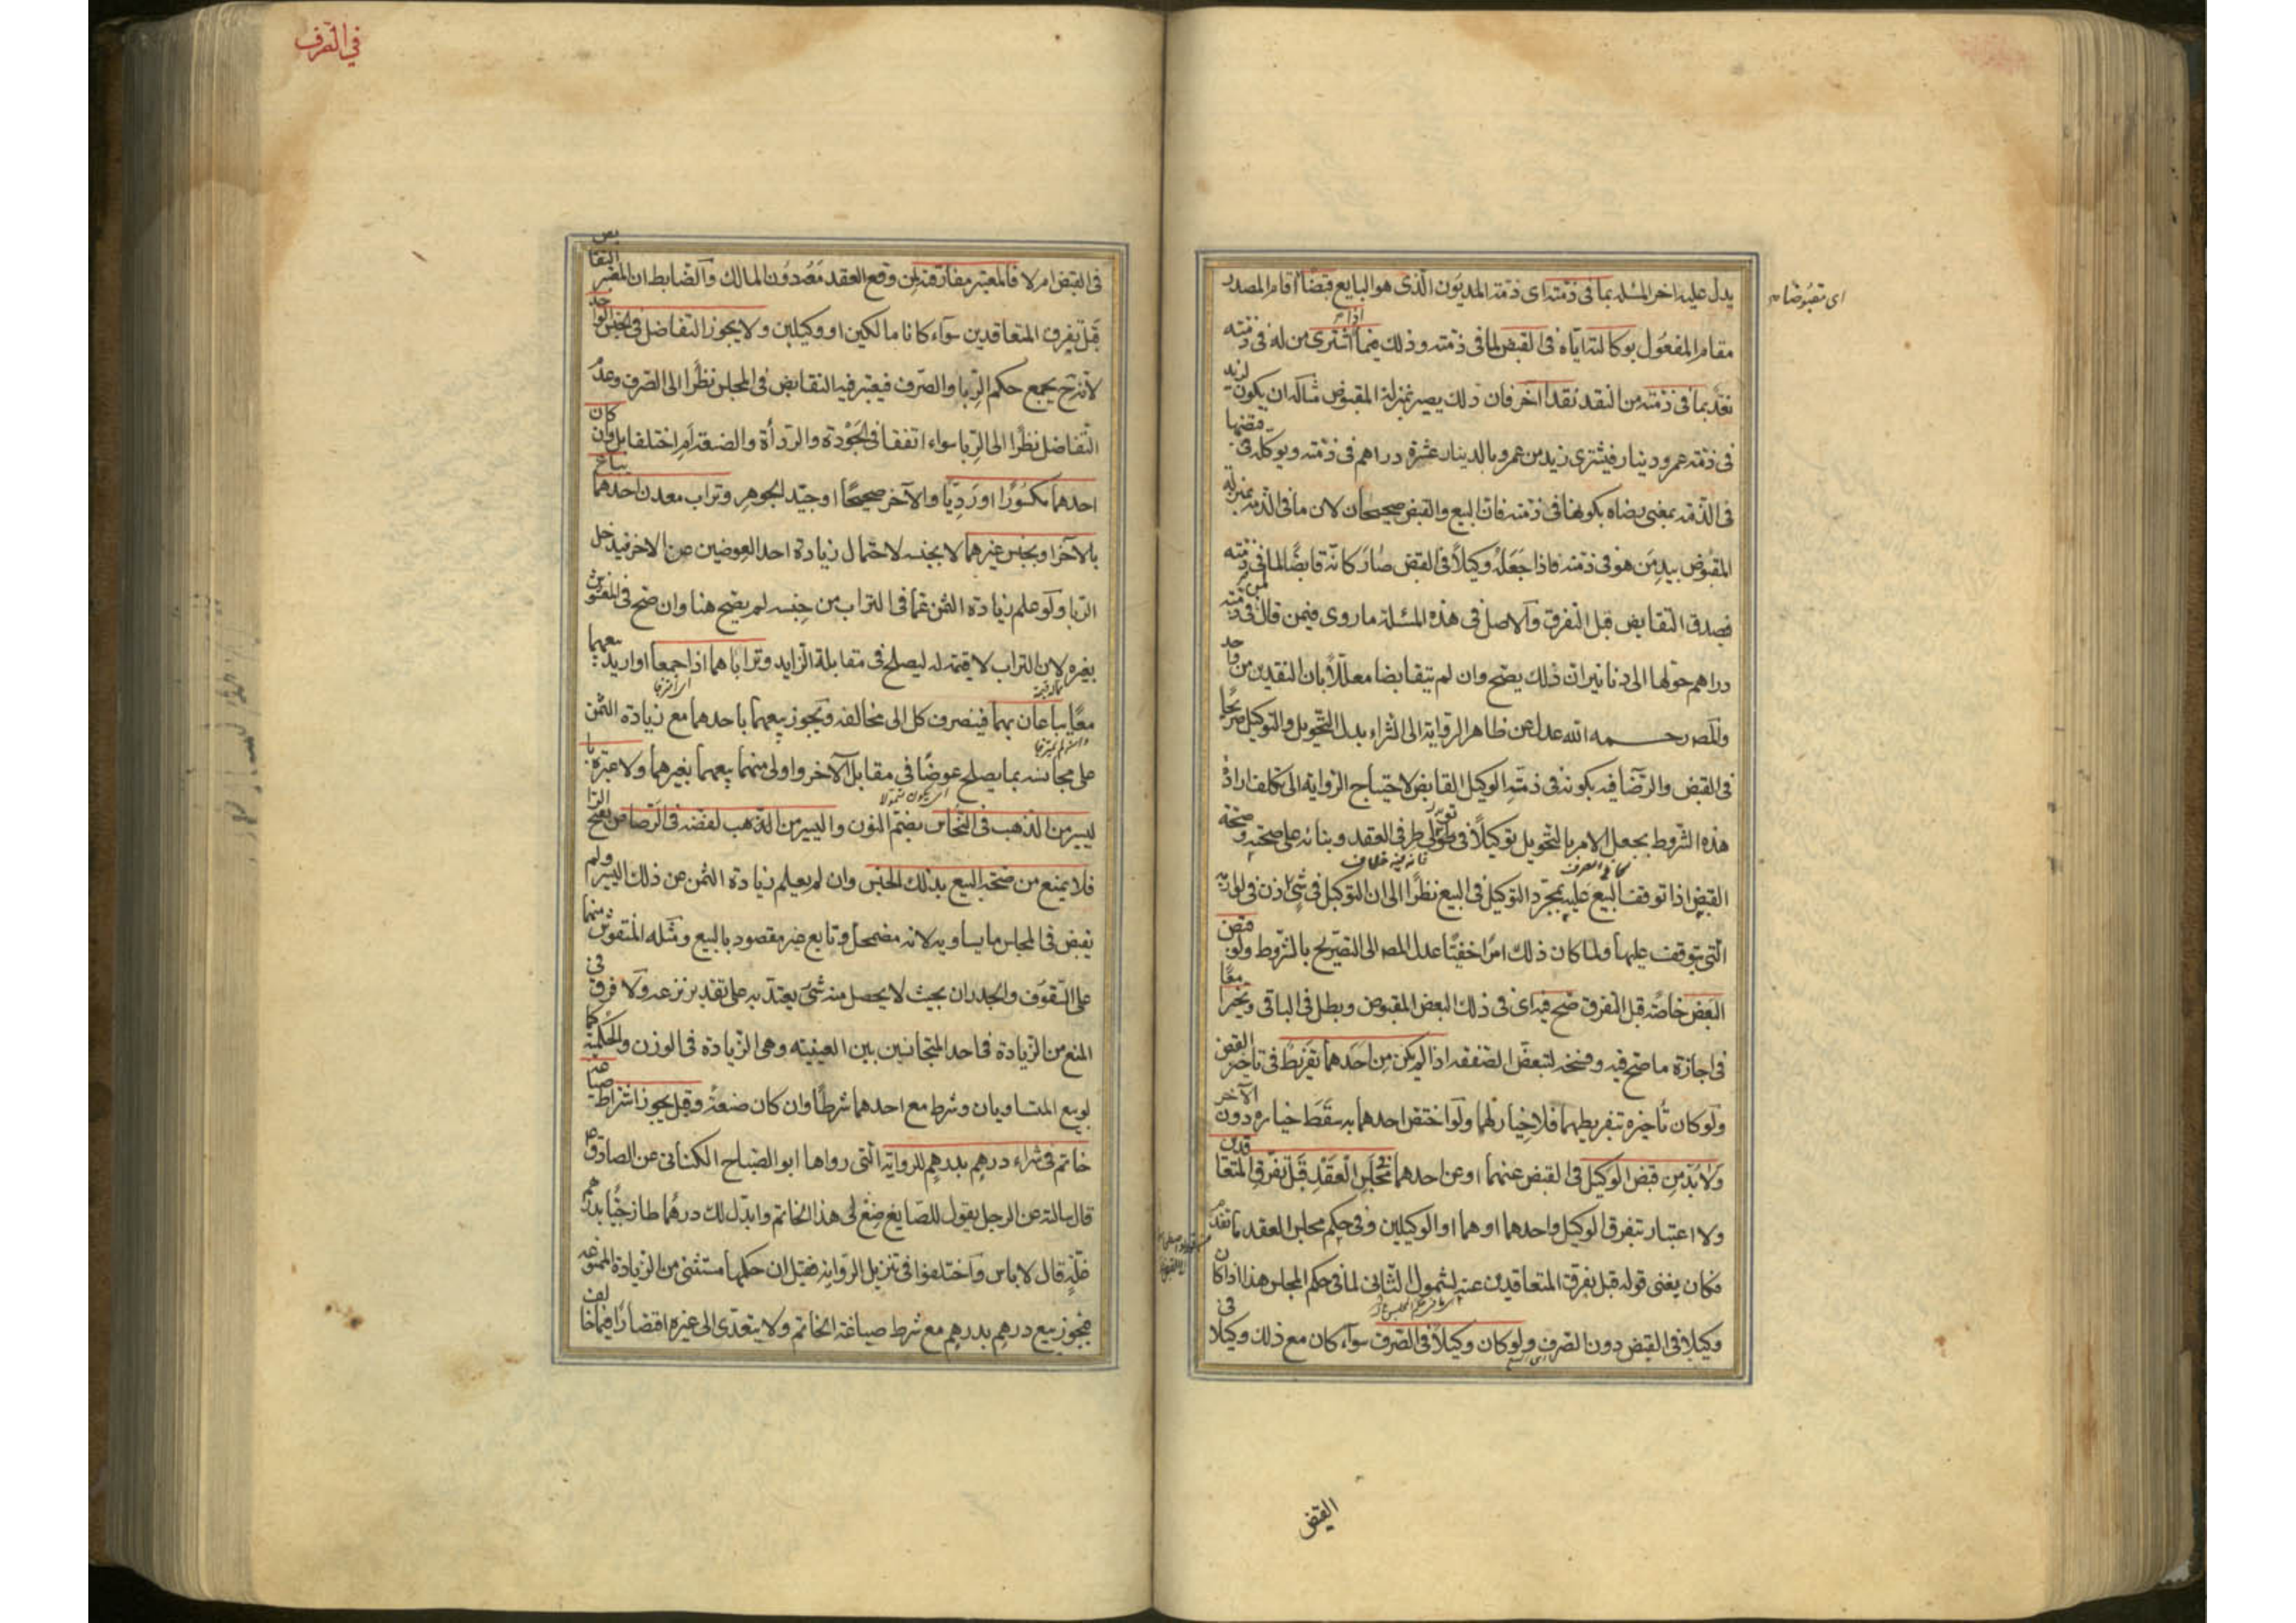 يدل عليه اخر المسئلة بما في ذمته اى ذمة المديون الذى هو البايع قبضًا اقام المصدر
اى مقبوضا
مقام المفعول بوكالته اياه فى القبض لما فى ذمته وذلك فيما اذا اشترى من له فى ذمته
نقد بما فى ذمته من النقد نقدا آخر فان ذلك يصير بمنزلة المقبوض مثاله ان يكون لزيد
فى ذمة عمرو دينار فيشترى زيد من عمرو بالدينار عشرة دراهم فى ذمته ويوكله فى قبضها
فى الذمة بمعنى رضاه بكونها فى ذمته فان البيع والقبض صحيحان لان ما فى الذمة بمنزلة
المقبوض بيد من هو فى ذمته فاذا جعله وكيلاً فى القبض صار كانه قابضًا لما فى ذمته
فصدق التقابض قبل التفرق والاصل فى هذه المسئلة ما روى فيمن قال لمن فى ذمته
دراهم حولها الى دنانير ان ذلك يصح وان لم يتقابضا معللًا بان النقدين من واحد
والمصـ رحمه الله عدل عن ظاهر الرواية الى الشراء بدل التحويل والتوكيل صريحًا
فى القبض والرضا فيه بكونه فى ذمة الوكيل القابض لاحتياج الرواية الى تكلف ارادة
هذه الشروط بجعل الامر بالتحويل توكيلاً فى تولى طرفى العقد وبنائه على صحته وصحة
القبض اذا توقف البيع عليه بمجرد التوكيل فى البيع نظرًا الى ان التوكيل فى شئ اذن فى لوازمه
التى يتوقف عليها ولما كان ذلك امرًا خفيًا عدل المصـ الى التصريح بالشروط ولو قبض
البعض خاصة قبل التفرق صح فيه اى فى ذلك البعض المقبوض وبطل فى الباقى وتخيرا معًا
فى اجازة ما صح فيه وفسخه لتبعض الصفقة اذا لم يكن من احدهما تفريط فى تاخير القبض
ولو كان تأخيره بتفريطهما فلا خيار لهما ولو اختص احدهما به سقط خياره دون الآخر
ولا بد من قبض الوكيل فى القبض عنهما او عن احدهما فى مجلس العقد قبل تفرق المتعاقدين
ولا اعتبار بتفرق الوكيل واحدهما او هما او الوكيلين وفى حكم مجلس العقد ما تقدم
فكان يغنى قوله قبل تفرق المتعاقدين عنه لشمول الثانى لما فى حكم المجلس هذا اذا كان
وكيلا فى القبض دون الصرف ولو كان وكيلاً فى الصرف سواء كان مع ذلك وكيلا فى
القبض
فى الصرف
فى القبض ام لا فالمعتبر مفارقته لمن وقع العقد معه دون المالك والضابط ان المعتبر التقابض
قبل تفرق المتعاقدين سواء كانا مالكين او وكيلين ولا يجوز التفاضل فى الجنس الواحد
لانه ح يجمع حكم الربا والصرف فيعتبر فيه التقابض فى المجلس نظرا الى الصرف وعدم
التفاضل نظرًا الى الربا سواء اتفقا فى الجودة والردأة والصنعة ام اختلفا بل وان كان
احدهما مكسورًا او رديًا والآخر صحيحًا او جيد الجوهر وتراب معدن احدهما يباع
بالآخر او بجنس غيرهما لا بجنسه لاحتمال زيادة احد العوضين عن الاخر فيدخل
الربا ولو علم زيادة الثمن عما فى التراب من جنسه لم يصح هنا وان صح فى المغشوش
بغيره لان التراب لا قيمة له ليصلح فى مقابلة الزايد وتراباهما اذا جمعا او اريد بيعهما
معًا يباعان بهما فينصرف كل الى مخالفه ويجوز بيعهما باحدهما مع زيادة الثمن
على مجانسه بما يصلح عوضًا فى مقابل الآخر واولى منهما بيعهما بغيرهما ولا عبرة با
ليسير من الذهب فى النحاس بضم النون واليسير من الفضه فى الرصاص بفتح الرا
فلا يمنع من صحة البيع بذلك الجنس وان لم يعلم زيادة الثمن عن ذلك اليسير ولم
يقبض فى المجلس ما يساويه لانه مضمحل وتابع غير مقصود بالبيع ومثله المنقوش منهما
على السقوف والجدران بحيث لا يحصل منه شئ يعتد به على تقدير نزعه ولا فرق فى
المنع من الزيادة فى احد المتجانسين بين العينيه وهى الزيادة فى الوزن والحكمية كما
لو بيع المتساويان وشرط مع احدهما شرطًا وان كان صنعة وقيل يجوز اشتراط صياغة
خاتم فى شراء درهم بدرهم للرواية التى رواها ابو الصباح الكنانى عن الصادق ع
قال سالته عن الرجل يقول للصايغ صغ لى هذا الخاتم وابدل لك درهما طازجيًا بدرهم
غلة قال لا باس واختلفوا فى تنزيل الرواية فقيل ان حكمها مستثنى من الزيادة الممنوعه
فيجوز بيع درهم بدرهم مع شرط صياغة الخاتم ولا يتعدى الى غيره اقتصارًا فيما خالف